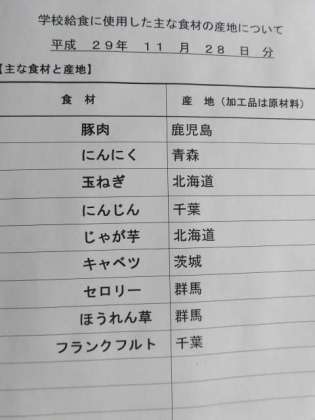 学校給食に使用した主な食材の産地について
平成 29年 11 月 28 日 分
【主な食材と産地】
食 材 産 地（加工品は原材料）
豚肉 鹿児島
にんにく 青森
玉ねぎ 北海道
にんじん 千葉
じゃが芋 北海道
キャベツ 茨城
セロリー 群馬
ほうれん草 群馬
フランクフルト 千葉